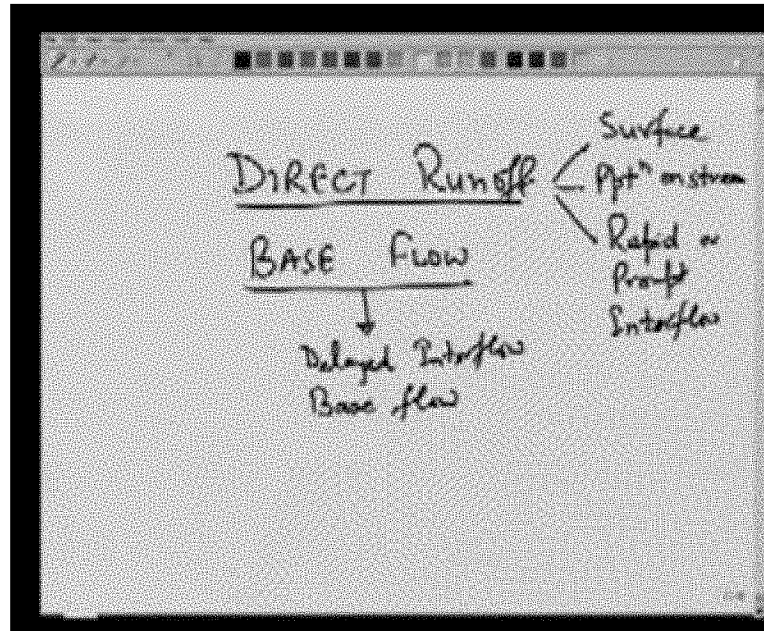 DIRECT Runoff
Surface
Pptⁿ on stream
Rapid or
Prompt
Interflow
BASE FLOW
Delayed Interflow
Base flow